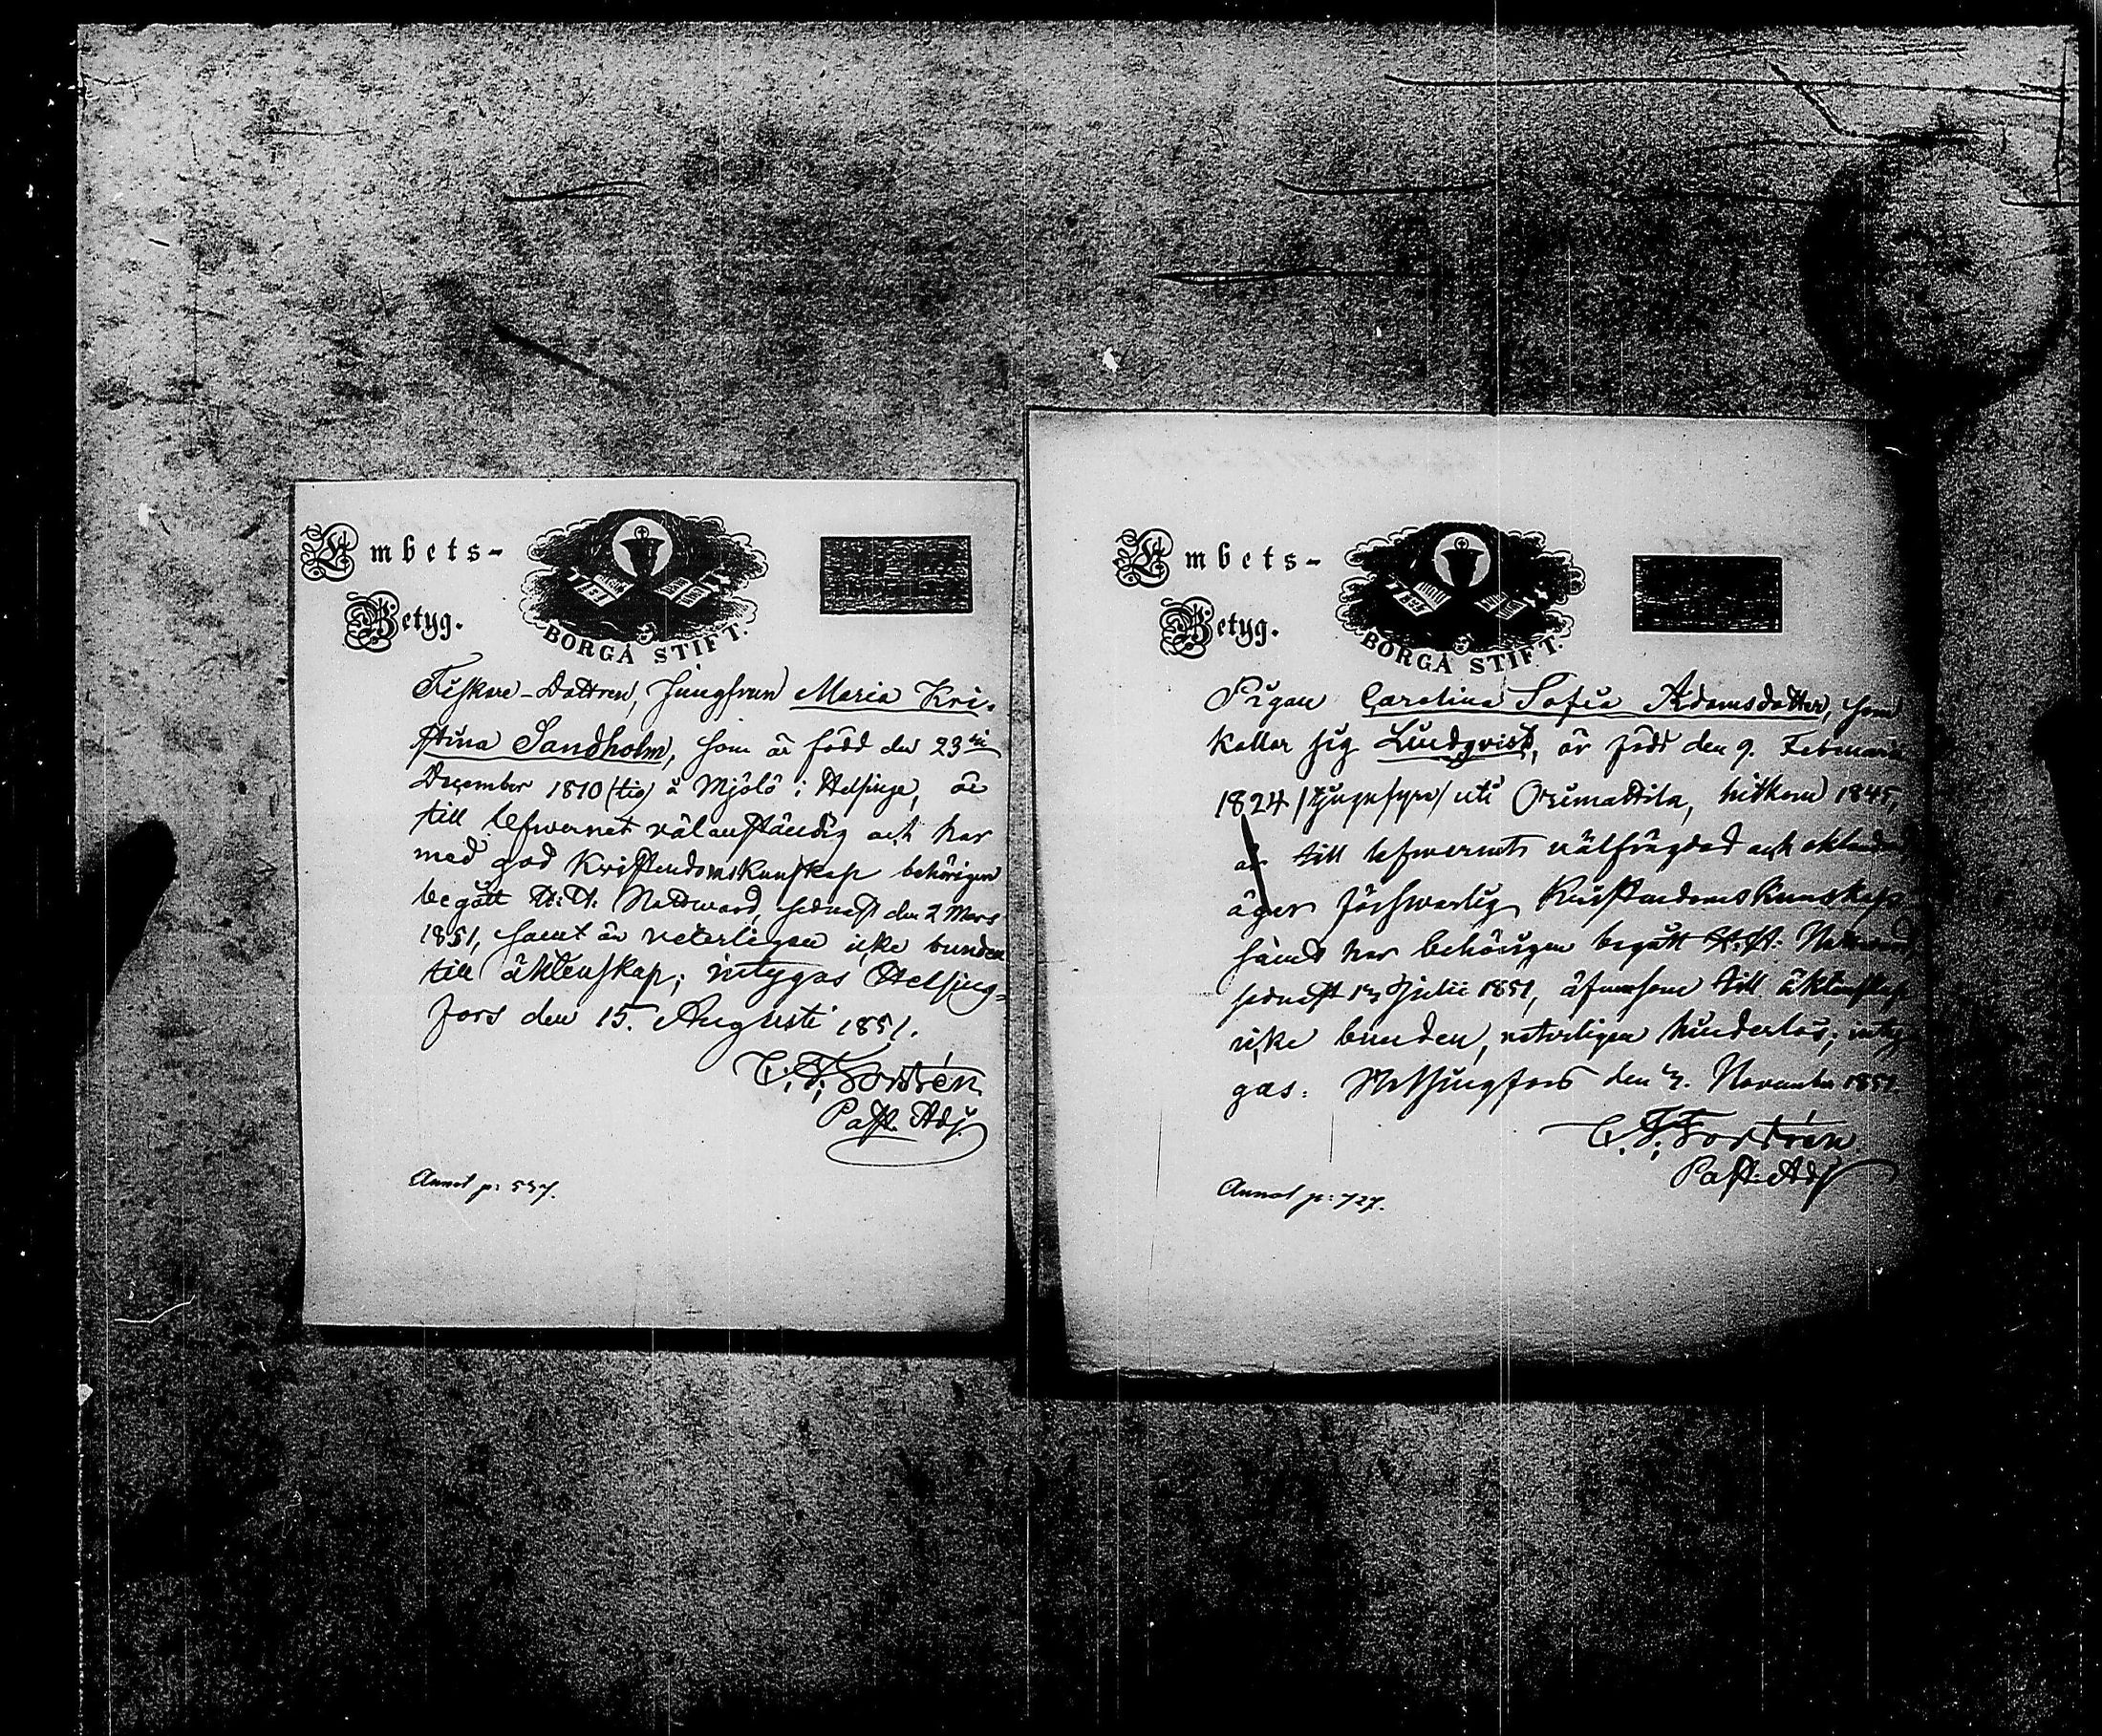 Embets-
Betyg.
BORGÅ STIFT.
Fiskare-Dottren, Jungfrun Maria Kri-
stina Sandholm, som är född den 23
December 1810 (tio) å Mjölö i Helsinge, är
till lefvernet välanständig och har
med god Kristendomskunskap behörigen
begått H. H. Nattvard, sednast den 2 Mars
1851, samt är veterligen icke bunden
till äktenskap; intygas Helsing-
fors den 15. Augusti 1851.
C. F. Forstrén
Past. Adj.
Annot p: 557.
Embets-
Betyg.
BORGÅ STIFT.
Pigan Carolina Sofia Adamsdotter, som
kallar sig Lindqvist, är född den 9. Februarii
1824 /tjugufyra/ uti Orimattila, hitkom 1845,
är till lefvernets välfrägdad och oklandrad
äger försvarlig Kristendoms Kunskap
samt har behörigen begått H. H. Nattvard,
sednast Julii 1851, äfvensom till äktenskap
icke bunden, veterligen hinderlös; inty
gas. Helsingfors den November 1851
C. F. Forstrén
Past. Adj
Annot p: 727.